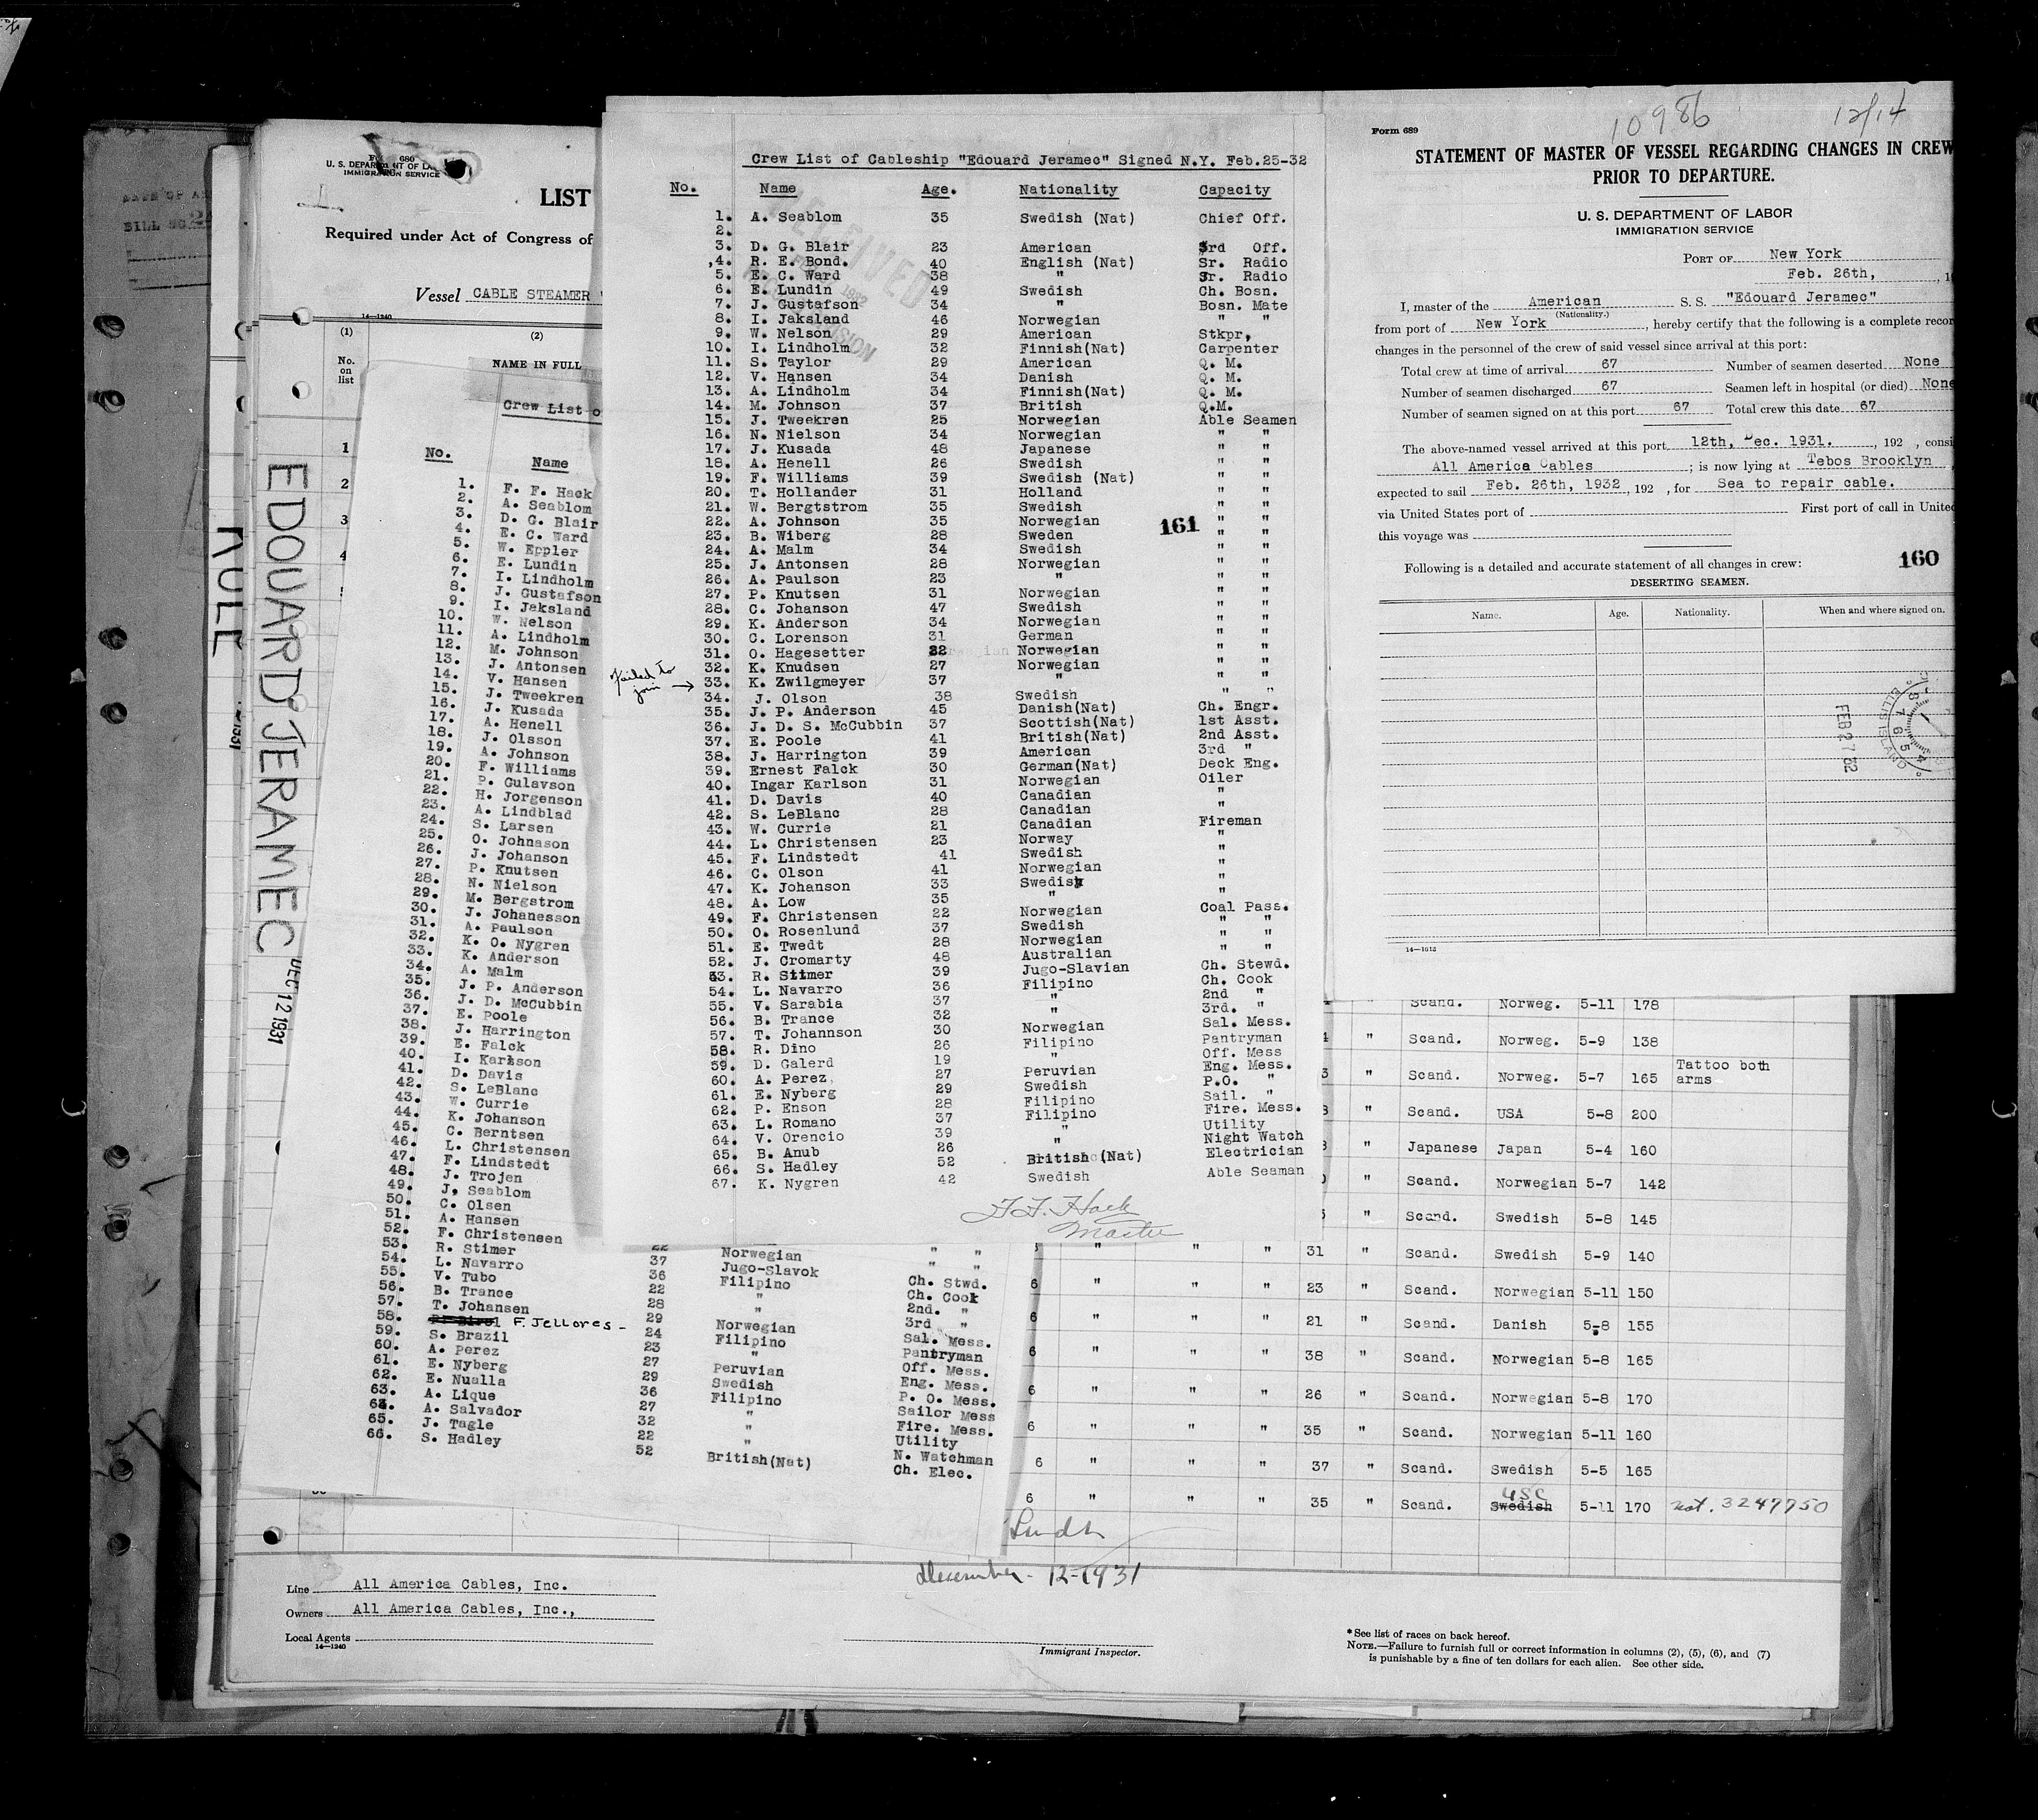 Form 680
U. S. DEPARTMENT OF LABOR
IMMIGRATION SERVICE
LIST
Required under Act of Congress of
Vessel CABLE STEAMER
14—1240
(1)
(2)
No. on list
NAME IN FULL
1
2
3
4
EDOUARD JERAMEC
DEC 12 1931
BILL NO.
Crew List of Cableship "Edouard Jeramec" Signed N.Y. Feb.25-32
No. Name Age. Nationality Capacity
1. A. Seablom 35 Swedish (Nat) Chief Off.
2.
3. D. G. Blair 23 American 3rd Off.
4. R. E. Bond. 40 English (Nat) Sr. Radio
5. E. C. Ward 38 " Jr. Radio
6. E. Lundin 49 Swedish Ch. Bosn.
7. J. Gustafson 34 " Bosn. Mate
8. I. Jaksland 46 Norwegian " "
9. W. Nelson 29 American Stkpr,
10. I. Lindholm 32 Finnish(Nat) Carpenter
11. S. Taylor 29 American Q. M.
12. V. Hansen 34 Danish Q. M.
13. A. Lindholm 34 Finnish(Nat) Q. M.
14. M. Johnson 37 British Q.M.
15. J. Tweekren 25 Norwegian Able Seamen
16. N. Nielson 34 Norwegian " "
17. J. Kusada 48 Japanese " "
18. A. Henell 26 Swedish " "
19. F. Williams 39 Swedish (Nat) " "
20. T. Hollander 31 Holland " "
21. W. Bergtstrom 35 Swedish " "
22. A. Johnson 35 Norwegian " "
161
23. B. Wiberg 28 Sweden " "
24. A. Malm 34 Swedish " "
25. J. Antonsen 28 Norwegian " "
26. A. Paulson 23 " " "
27. P. Knutsen 31 Norwegian " "
28. C. Johanson 47 Swedish " "
29. K. Anderson 34 Norwegian " "
30. C. Lorenson 31 German " "
31. O. Hagesetter 22 Norwegian " "
32. K. Knudsen 27 Norwegian " "
failed to join →
33. K. Zwilgmeyer 37 " " "
34. J. Olson 38 Swedish " "
35. J. P. Anderson 45 Danish(Nat) Ch. Engr.
36. J. D. S. McCubbin 37 Scottish(Nat) 1st Asst.
37. E. Poole 41 British(Nat) 2nd Asst.
38. J. Harrington 39 American 3rd "
39. Ernest Falck 30 German(Nat) Deck Eng.
40. Ingar Karlson 31 Norwegian Oiler
41. D. Davis 40 Canadian "
42. S. LeBlanc 28 Canadian "
43. W. Currie 21 Canadian Fireman
44. L. Christensen 23 Norway "
45. F. Lindstedt 41 Swedish "
46. C. Olson 41 Norwegian "
47. K. Johanson 33 Swedish "
48. A. Low 35 " "
49. F. Christensen 22 Norwegian Coal Pass.
50. O. Rosenlund 37 Swedish " "
51. E. Twedt 28 Norwegian " "
52. J. Cromarty 48 Australian " "
53. R. Stimer 39 Jugo-Slavian Ch. Stewd.
54. L. Navarro 36 Filipino Ch. Cook
55. V. Sarabia 37 " 2nd "
56. B. Trance 32 " 3rd. "
57. T. Johannson 30 Norwegian Sal. Mess.
58. R. Dino 26 Filipino Pantryman
59. D. Galerd 19 " Off. Mess
60. A. Perez 27 Peruvian Eng. Mess.
61. E. Nyberg 29 Swedish P.O. "
62. P. Enson 28 Filipino Sail. "
63. L. Romano 37 Filipino Fire. Mess.
64. V. Orencio 39 " Utility
65. B. Anub 26 " Night Watch
66. S. Hadley 52 British (Nat) Electrician
67. K. Nygren 42 Swedish Able Seaman
F. F. Hack
Master
Crew List o
No. Name
1. F. F. Hack
2. A. Seablom
3. D. G. Blair
4. E. C. Ward
5. W. Eppler
6. E. Lundin
7. I. Lindholm
8. J. Gustafson
9. I. Jaksland
10. W. Nelson
11. A. Lindholm
12. M. Johnson
13. J. Antonsen
14. V. Hansen
15. J. Tweekren
16. J. Kusada
17. A. Henell
18. J. Olsson
19. A. Johnson
20. F. Williams
21. P. Gulavson
22. H. Jorgenson
23. A. Lindblad
24. S. Larsen
25. O. Johnason
26. J. Johanson
27. P. Knutsen
28. N. Nielson
29. M. Bergstrom
30. J. Johanesson
31. A. Paulson
32. K. O. Nygren
33. K. Anderson
34. A. Malm
35. J. P. Anderson
36. J. D. McCubbin
37. E. Poole
38. J. Harrington
39. E. Falck
40. I. Karlson
41. D. Davis
42. S. LeBlanc
43. W. Currie
44. K. Johanson
45. C. Berntsen
46. L. Christensen
47. F. Lindstedt
48. J. Trojen
49. J. Seablom
50. C. Olsen
51. A. Hansen
52. F. Christensen 22 Norwegian " "
53. R. Stimer 37 Jugo-Slavok Ch. Stwd.
54. L. Navarro 36 Filipino Ch. Cook
55. V. Tubo 22 " 2nd. "
56. B. Trance 28 " 3rd "
57. T. Johansen 29 Norwegian Sal. Mess.
58. F. Jellores - 24 Filipino Pantryman
59. S. Brazil 23 " Off. Mess.
60. A. Perez 27 Peruvian Eng. Mess.
61. E. Nyberg 29 Swedish P. O. Mess.
62. E. Nualla 36 Filipino Sailor Mess
63. A. Lique 27 " Fire. Mess.
64. A. Salvador 32 " Utility
65. J. Tagle 22 " N. Watchman
66. S. Hadley 52 British(Nat) Ch. Elec.
Form 689
10986
12/14
STATEMENT OF MASTER OF VESSEL REGARDING CHANGES IN CREW
PRIOR TO DEPARTURE.
U. S. DEPARTMENT OF LABOR
IMMIGRATION SERVICE
PORT OF New York
Feb. 26th,
I, master of the American S. S. "Edouard Jeramec"
(Nationality.)
from port of New York, hereby certify that the following is a complete recor
changes in the personnel of the crew of said vessel since arrival at this port:
Total crew at time of arrival 67 Number of seamen deserted None
Number of seamen discharged 67 Seamen left in hospital (or died) None
Number of seamen signed on at this port 67 Total crew this date 67
The above-named vessel arrived at this port 12th, Dec. 1931. , 192 , consi
All America Cables ; is now lying at Tebos Brooklyn
expected to sail Feb. 26th, 1932, 192 , for Sea to repair cable.
via United States port of First port of call in Unite
this voyage was
Following is a detailed and accurate statement of all changes in crew:
160
DESERTING SEAMEN.
Name. Age. Nationality. When and where signed on.
FEB 27 32
ELLIS ISLAND
14—1613
" Scand. Norweg. 5-11 178
" Scand. Norweg. 5-9 138
" Scand. Norweg. 5-7 165 Tattoo both arms
" Scand. USA 5-8 200
" Japanese Japan 5-4 160
" Scand. Norwegian 5-7 142
" Scand. Swedish 5-8 145
" " " 31 " Scand. Swedish 5-9 140
6 " " " 23 " Scand. Norwegian 5-11 150
6 " " " 21 " Scand. Danish 5-8 155
6 " " " 38 " Scand. Norwegian 5-8 165
6 " " " 26 " Scand. Norwegian 5-8 170
6 " " " 35 " Scand. Norwegian 5-11 160
6 " " " 37 " Scand. Swedish 5-5 165
6 " " " 35 " Scand. Swedish USC 5-11 170 nat. 3247750
December - 12-1931
Line All America Cables, Inc.
Owners All America Cables, Inc.,
Local Agents
14—1240
Immigrant Inspector.
*See list of races on back hereof.
NOTE.—Failure to furnish full or correct information in columns (2), (5), (6), and (7)
is punishable by a fine of ten dollars for each alien. See other side.